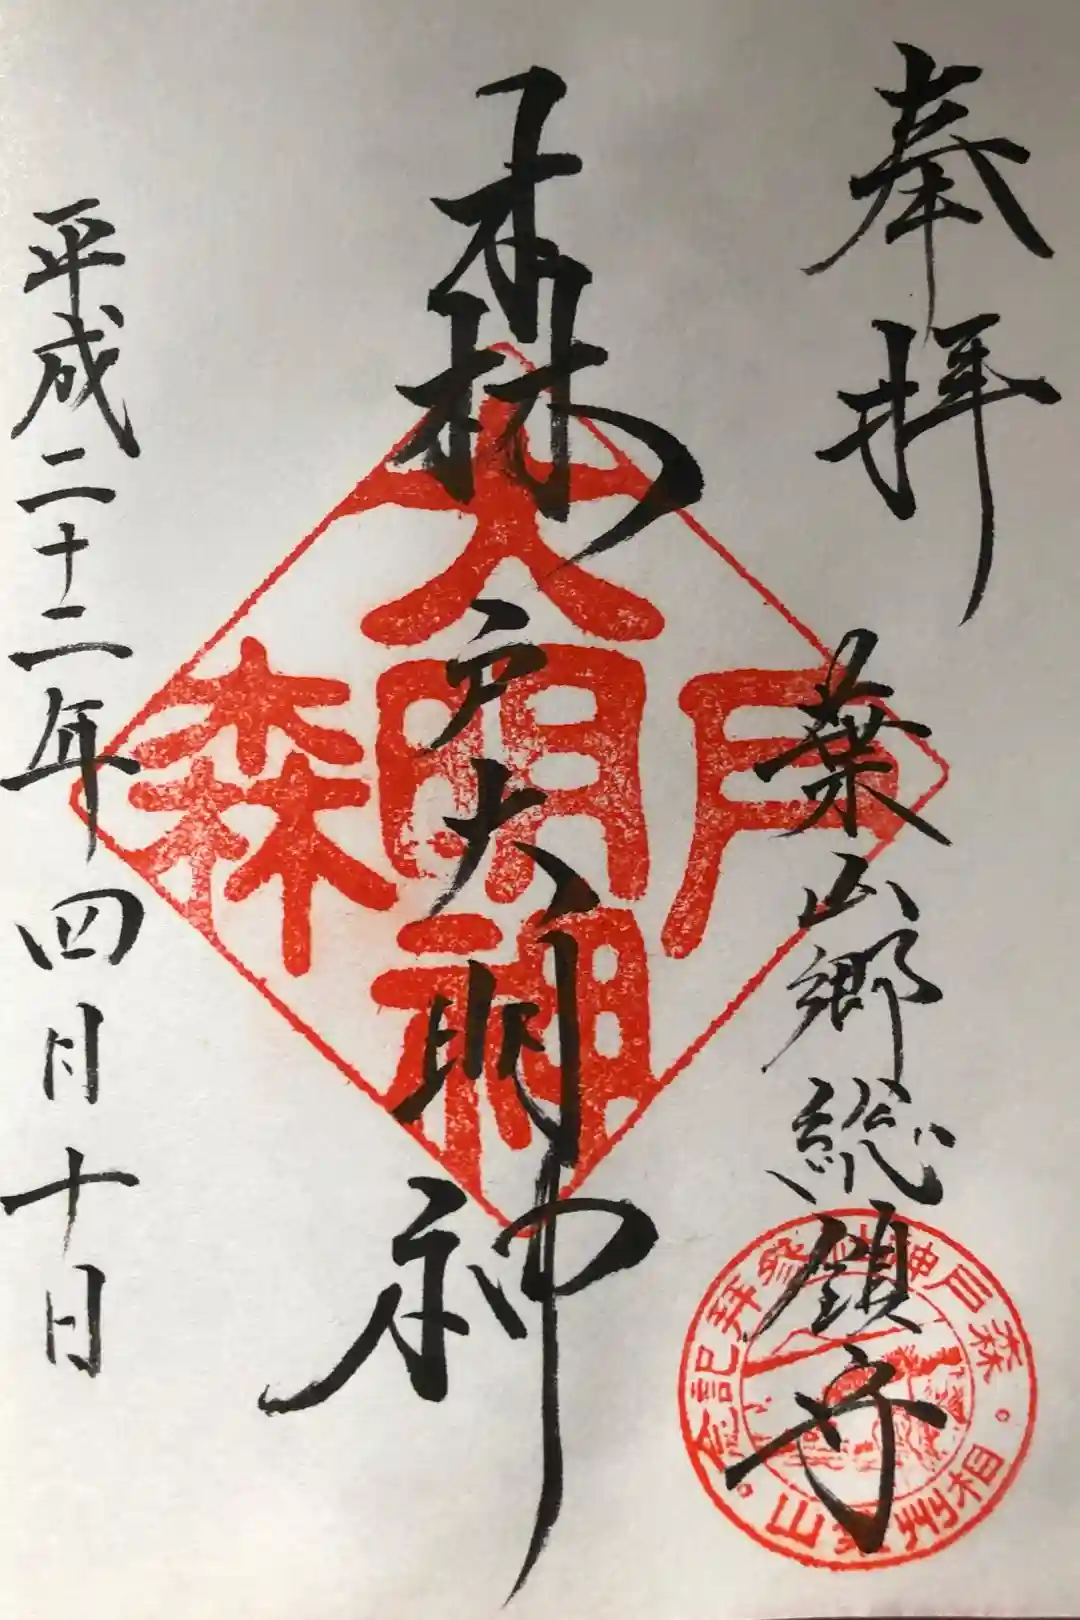 奉拝
葉山郷総鎮守
森戸大明神
平成二十二年四月十日
大明神
森
戸
森戸神社参拝記念
相州葉山